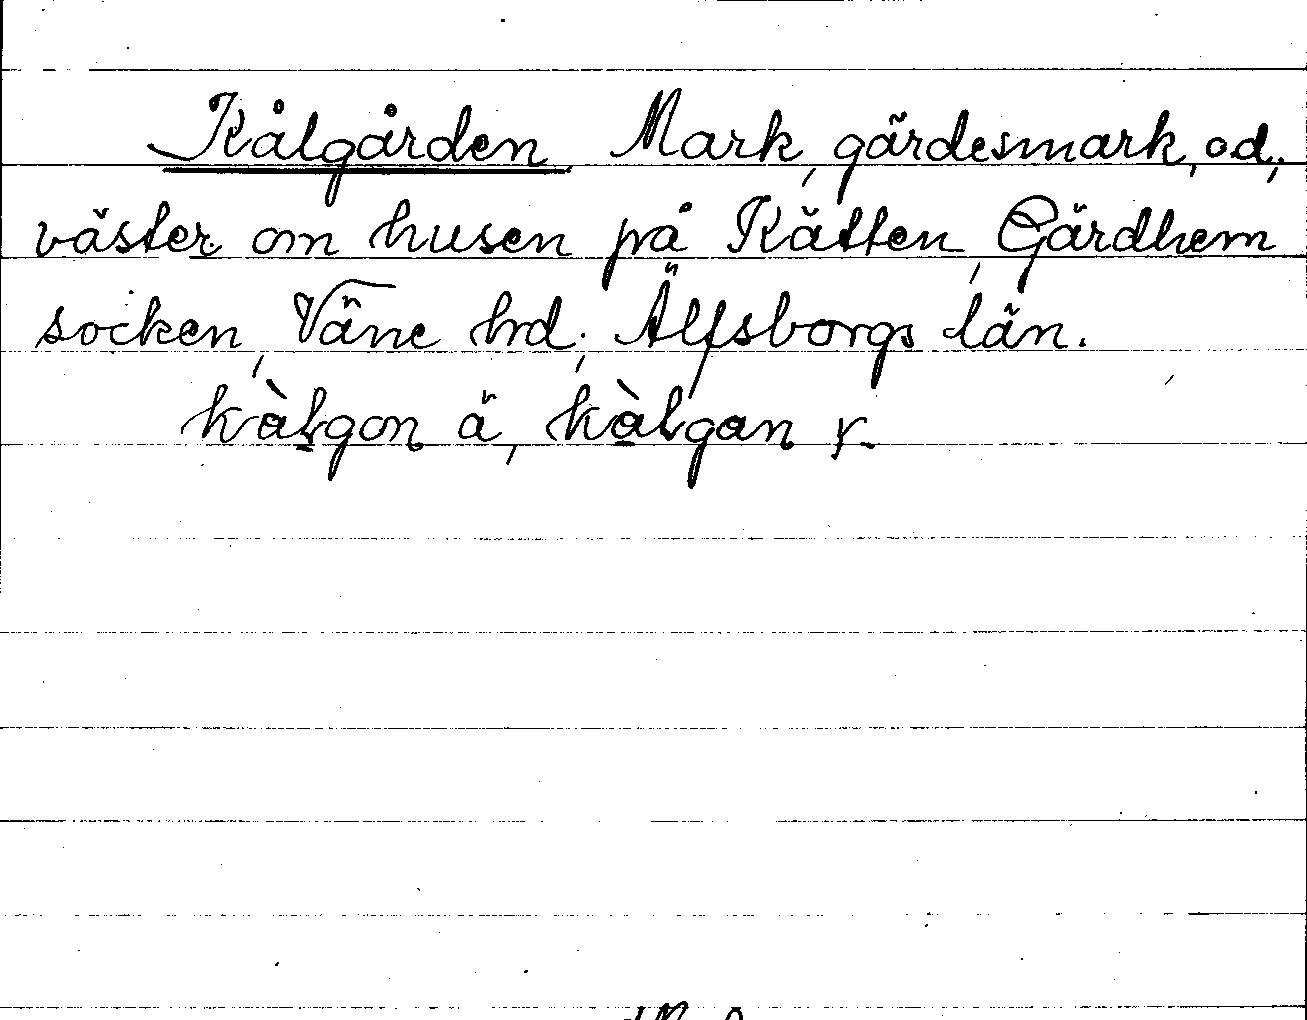 Kålgården. Mark, gärdesmark, od.,
väster om husen på Kätten, Gärdhem
socken, Väne hrd., Älfsborgs län.
kàlgon ä, kàlgan r.